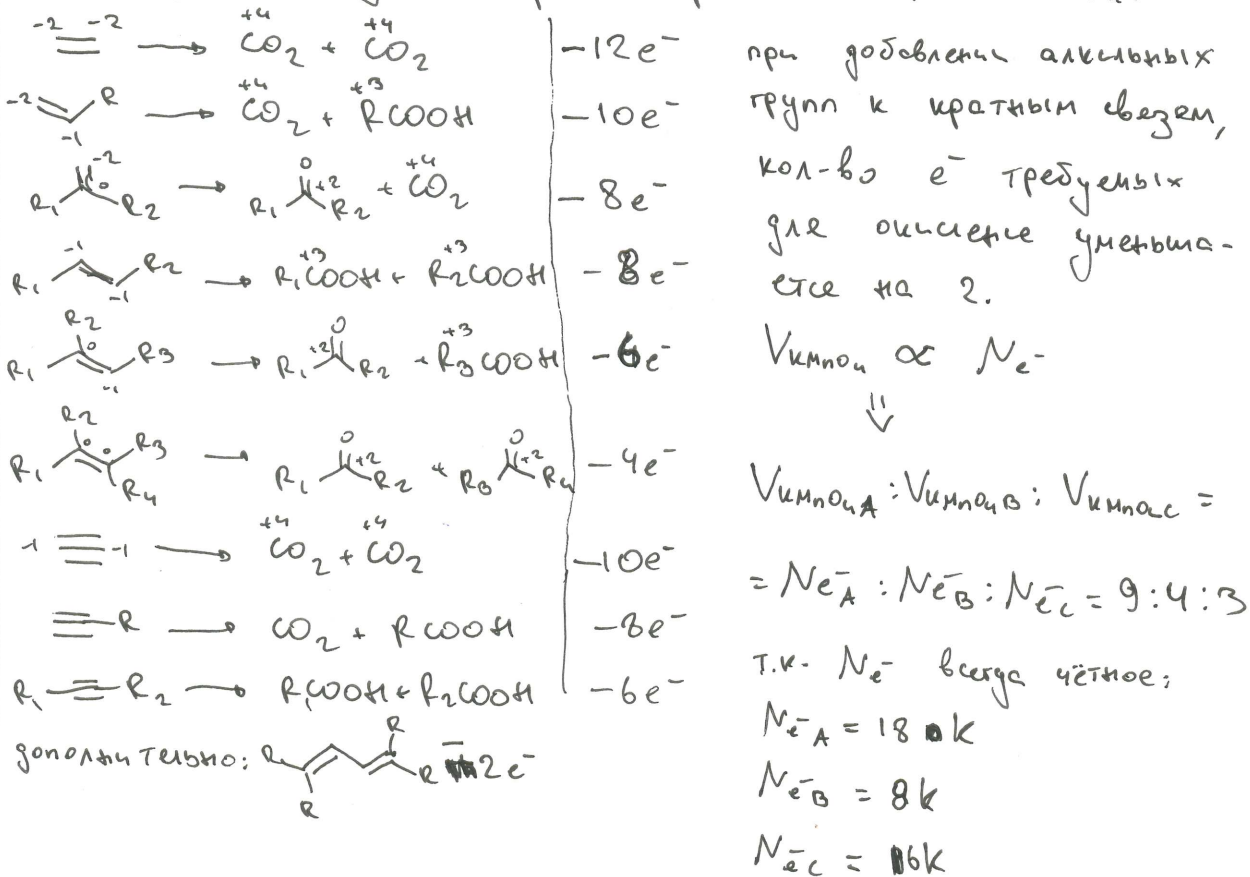 -2 -2 → +4 CO₂ + +4 CO₂ | -12e⁻
-2 R -1 → +4 CO₂ + +3 RCOOH | -10e⁻
-2 0 R₁ R₂ → O +2 R₁ R₂ + +4 CO₂ | -8e⁻
R₁ -1 -1 R₂ → +3 R₁COOH + +3 R₂COOH | -8e⁻
R₁ R₂ 0 -1 R₃ → R₁ +2 O R₂ + +3 R₃COOH | -6e⁻
R₁ R₂ 0 0 R₃ R₄ → R₁ O +2 R₂ + R₃ O +2 R₄ | -4e⁻
-1 ≡ -1 → +4 CO₂ + +4 CO₂ | -10e⁻
≡-R → CO₂ + RCOOH | -8e⁻
R₁-≡-R₂ → R₁COOH + R₂COOH | -6e⁻
дополнительно: R R R R -2e⁻
при добавлении алкильных
групп к кратным связям,
кол-во e⁻ требуемых
для окисление уменьша-
ется на 2.
Vкмпоч ∝ Ne⁻
⇓
VкмпочA : VкмпочB : VкмпоC =
= Ne⁻A : Ne⁻B : Ne⁻C = 9:4:3
т.к. Ne⁻ всегда чётное:
Ne⁻A = 18 k
Ne⁻B = 8k
Ne⁻C = 6k